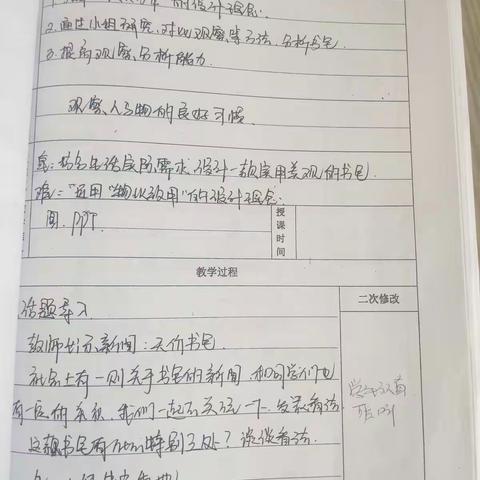 的设计理念.
2.通过小组研究、对比观察等方法,分析书包.
3.提高观察、分析能力.
观察人与物的良好习惯.
重:结合生活实际需求,设计一款实用美观的书包.
难:"运用"物以致用"的设计理念.
间、PPT.
授课时间
教学过程
二次修改
话题导入
教师出示新闻:天价书包.
社会上有一则关于书包的新闻,和同学们也
有一定的关系,我们一起来关注一下.发表看法
这款书包有什么特别之处?谈谈看法.